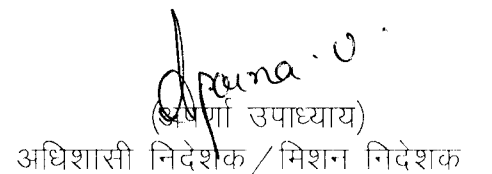 Aparna. U.
(अपर्णा उपाध्याय)
अधिशासी निदेशक / मिशन निदेशक